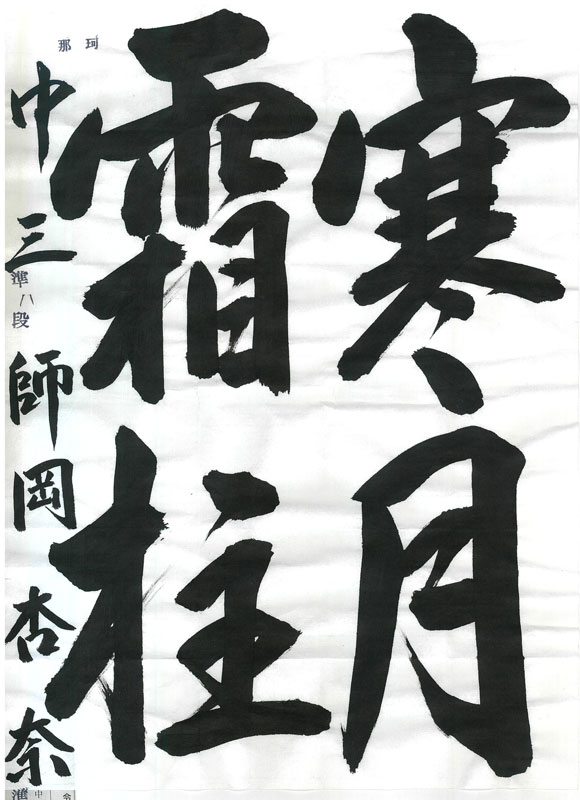 寒月
霜柱
中三 師岡杏奈
準八段
珂那